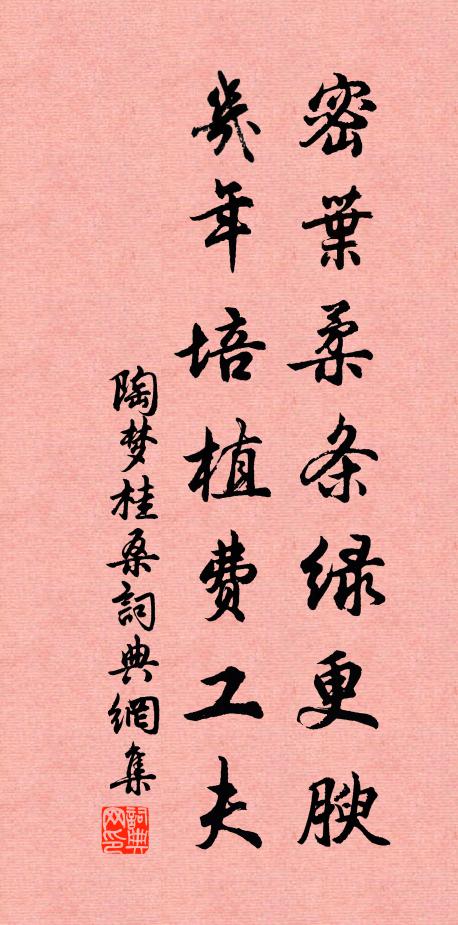 密葉柔条绿更腴
幾年培植費工夫
陶梦桂桑詞典網集
詞典网印